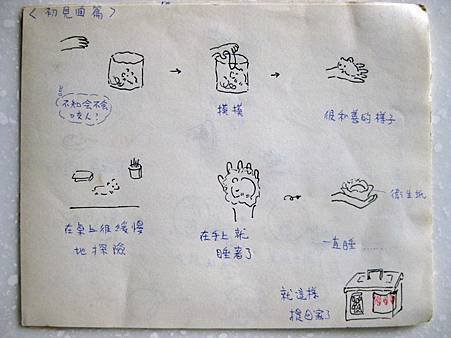 〈初見面篇〉
不知会不会
咬人！
摸摸
很和善的樣子
在桌上很緩慢
地探險
在手上就
睡著了
衛生紙
一直睡……
就這樣
提回家了